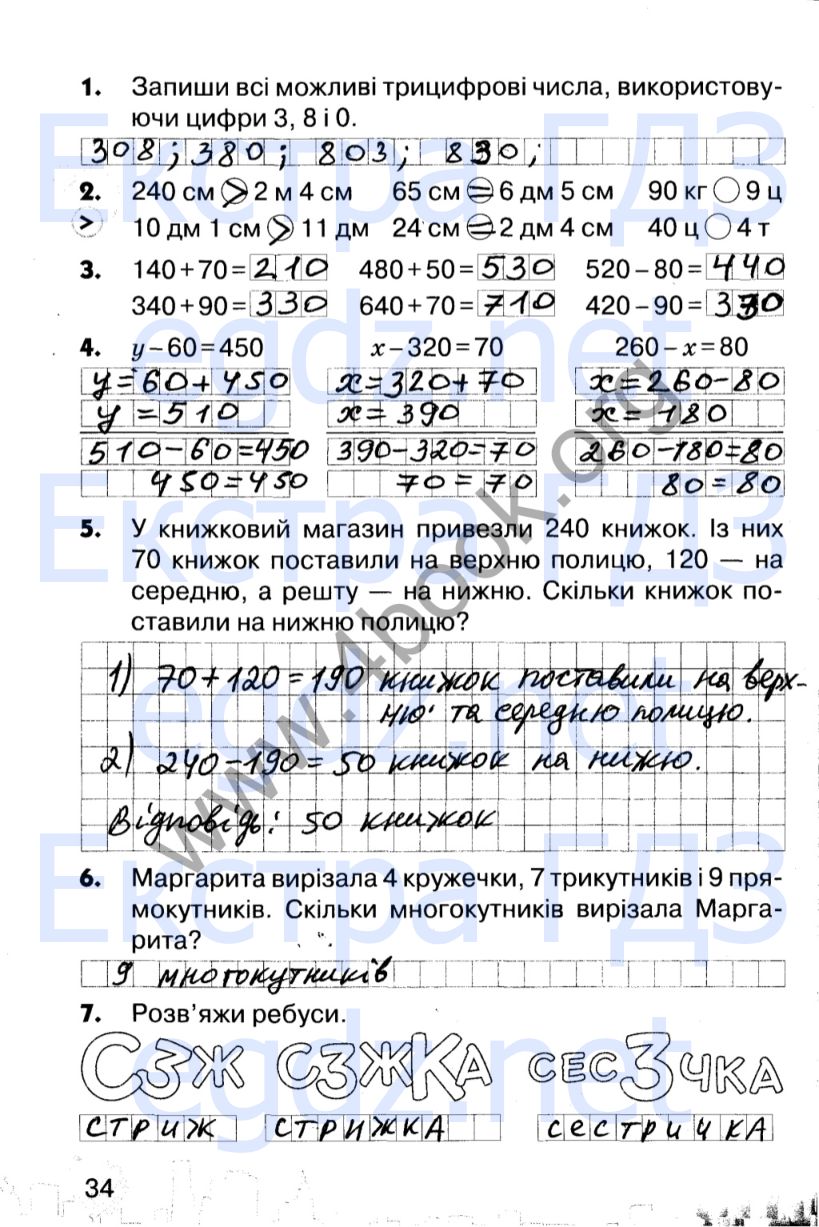 1. Запиши всі можливі трицифрові числа, використову-
ючи цифри 3, 8 і 0.
308; 380; 803; 830;
2. 240 см > 2 м 4 см 65 см = 6 дм 5 см 90 кг ◯ 9 ц
> 10 дм 1 см > 11 дм 24 см = 2 дм 4 см 40 ц ◯ 4 т
3. 140 + 70 = 210 480 + 50 = 530 520 – 80 = 440
340 + 90 = 330 640 + 70 = 710 420 – 90 = 330
4. y – 60 = 450 x – 320 = 70 260 – x = 80
y = 60 + 450 x = 320 + 70 x = 260 – 80
y = 510 x = 390 x = 180
510 – 60 = 450 390 – 320 = 70 260 – 180 = 80
450 = 450 70 = 70 80 = 80
5. У книжковий магазин привезли 240 книжок. Із них
70 книжок поставили на верхню полицю, 120 — на
середню, а решту — на нижню. Скільки книжок по-
ставили на нижню полицю?
1) 70 + 120 = 190 книжок поставили на верх-
ню та середню полицю.
2) 240 – 190 = 50 книжок на нижню.
Відповідь: 50 книжок
6. Маргарита вирізала 4 кружечки, 7 трикутників і 9 пря-
мокутників. Скільки многокутників вирізала Марга-
рита?
9 многокутників
7. Розв’яжи ребуси.
СЗЖ СЗЖКА СЕСЗЧКА
СТРИЖ СТРИЖКА СЕСТРИЧКА
34
Екстра ГДЗ
egdz.net
Екстра ГДЗ
egdz.net
Екстра ГДЗ
egdz.net
www.4book.org